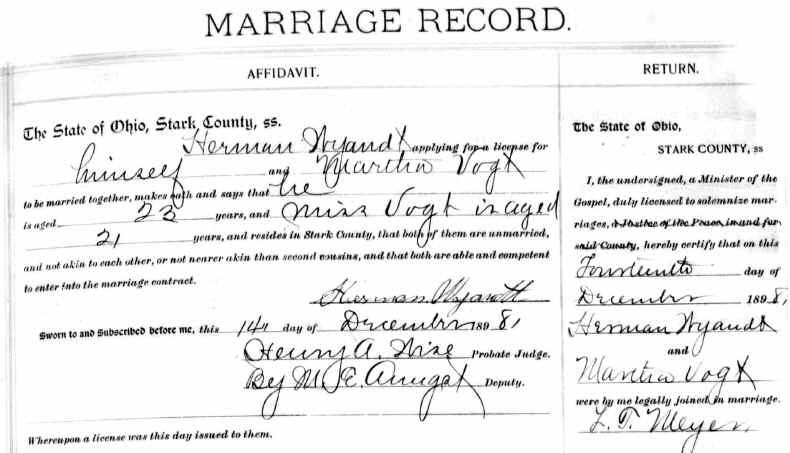 MARRIAGE RECORD.
AFFIDAVIT.
The State of Ohio, Stark County, ss.
Herman Wyandt applying for a license for
himself and Martha Vogt
to be married together, makes oath and says that he
is aged 23 years, and Miss Vogt is aged
21 years, and resides in Stark County, that both of them are unmarried,
and not akin to each other, or not nearer akin than second cousins, and that both are able and competent
to enter into the marriage contract.
Herman Wyandt
Sworn to and Subscribed before me, this 14 day of December 1898,
Henry A. Wise Probate Judge.
By M. E. Deputy.
Whereupon a license was this day issued to them.
RETURN.
The State of Ohio,
STARK COUNTY, ss
I, the undersigned, a Minister of the
Gospel, duly licensed to solemnize mar-
riages, a Justice of the Peace in and for
said County, hereby certify that on this
Fourteenth day of
December 1898,
Herman Wyandt
and
Martha Vogt
were by me legally joined in marriage.
L. T. Meyer